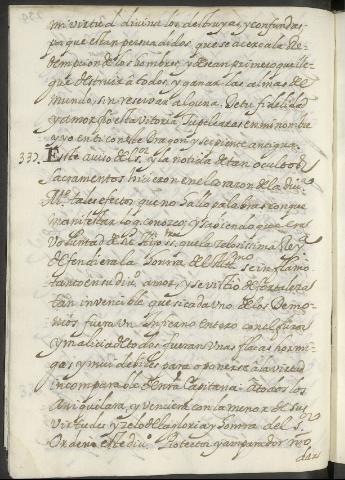 mi virtud divina los destruyas, y confundas
porque estan persuadidos, que se acerca la Re-
dempcion de los hombres, y desean primero que lle-
gue destruir à todos, y ganar las almas del
mundo, sin reservar alguna. De tu fidelidad
y amor fio esta vitoria y pelearas en mi nombre
y yo en ti con este Dragon, y serpiente antigua.
332. Este aviso del Sor. y la noticia de tan ocultos
sacramentos hicieron en el corazon de la div.
Me. tales efectos que no hallo palabras con que
manifestar lo q conozco, y sabiendo que era
voluntad de su Hijo SSmo. que la zelosissima Rey.
defendiera la honra del se inflamo
tanto en su divo. amor, y se vistio de fortaleza
tan invencible que si cada uno de los Demo-
nios fuera un Infierno entero con el furor
y malicia de todos fueran unas flacas hormi-
gas, y mui debiles para oponerse à la virtud
incomparable de nra. Capitana: à todos los
aniquilara, y venciera con la menor de sus
virtudes y zelo de la gloria y honra del S.or
Ordenò este divo. Protector y amparador nro.
dar